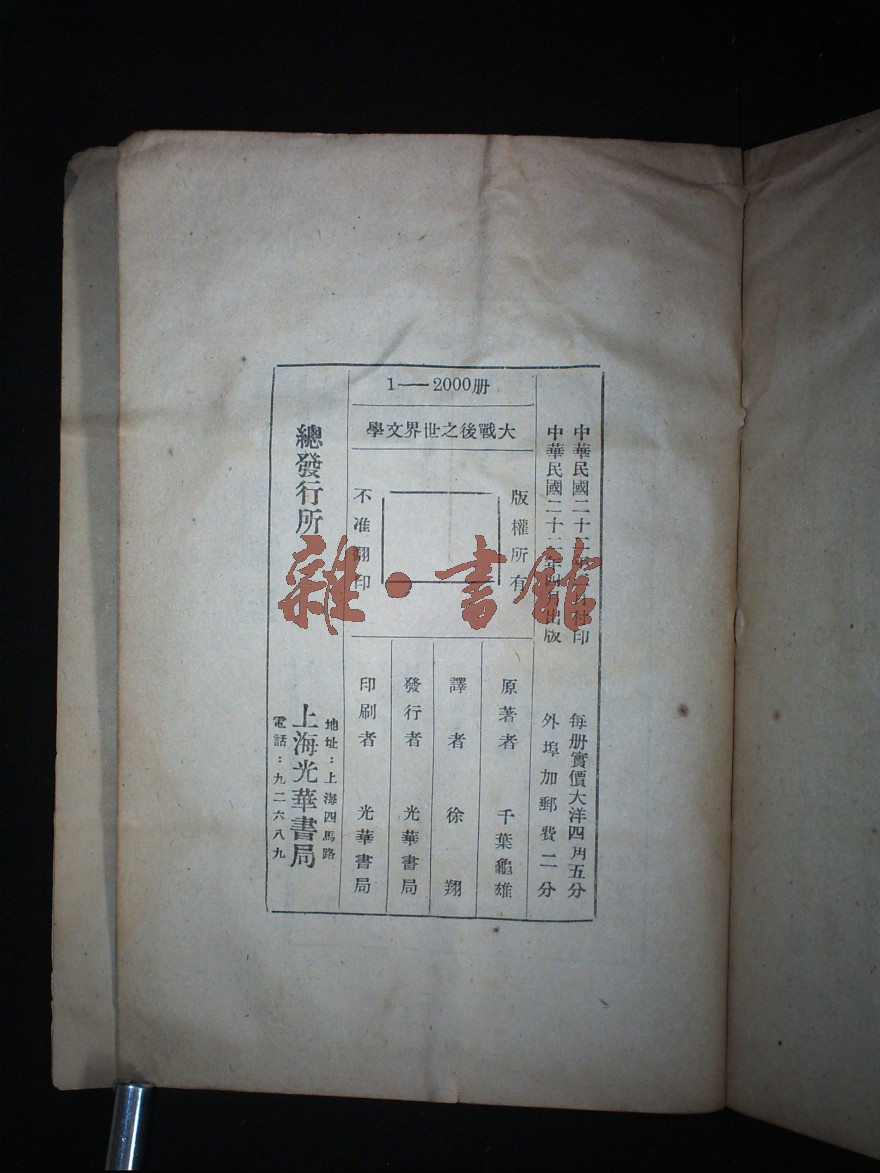 1——2000册
大戰後之世界文學
中華民國二十 年 月付印
每册實價大洋四角五分
中華民國二十 年四月出版
外埠加郵費二分
版權所有
不准翻印
原著者 千葉龜雄
譯者 徐翔
發行者 光華書局
印刷者 光華書局
總發行所
地址：上海四馬路
上海光華書局
電話：九二六八九
雜·書館